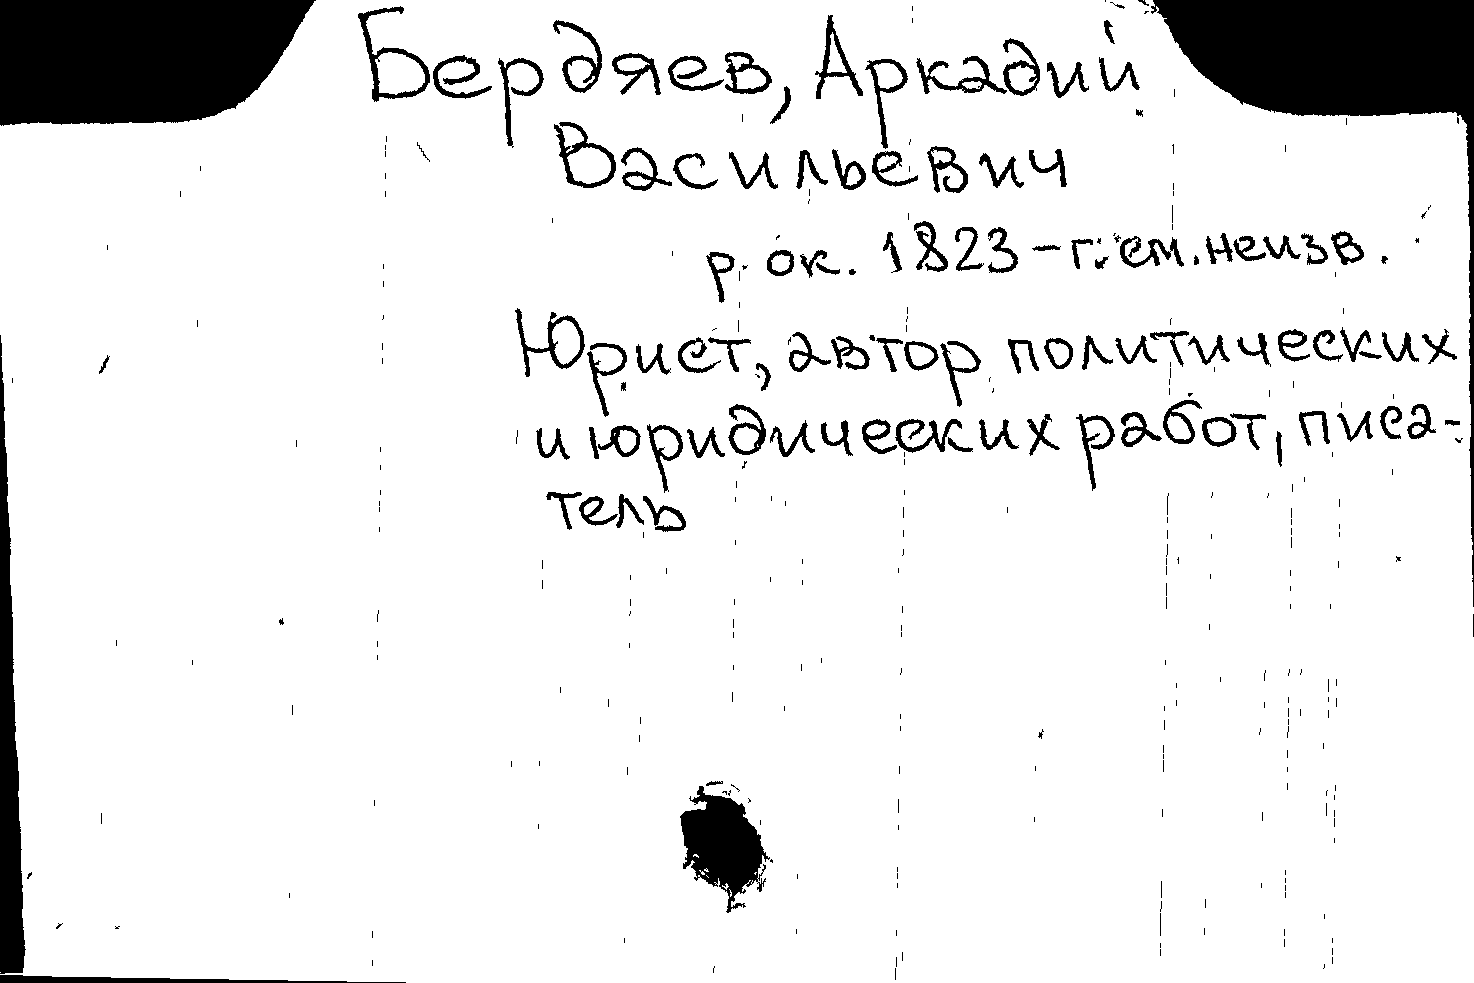 Бердяев, Аркадий
Васильевич
р. ок. 1823 - г. см. неизв.
Юрист, автор политических
и юридических работ, писа-
тель